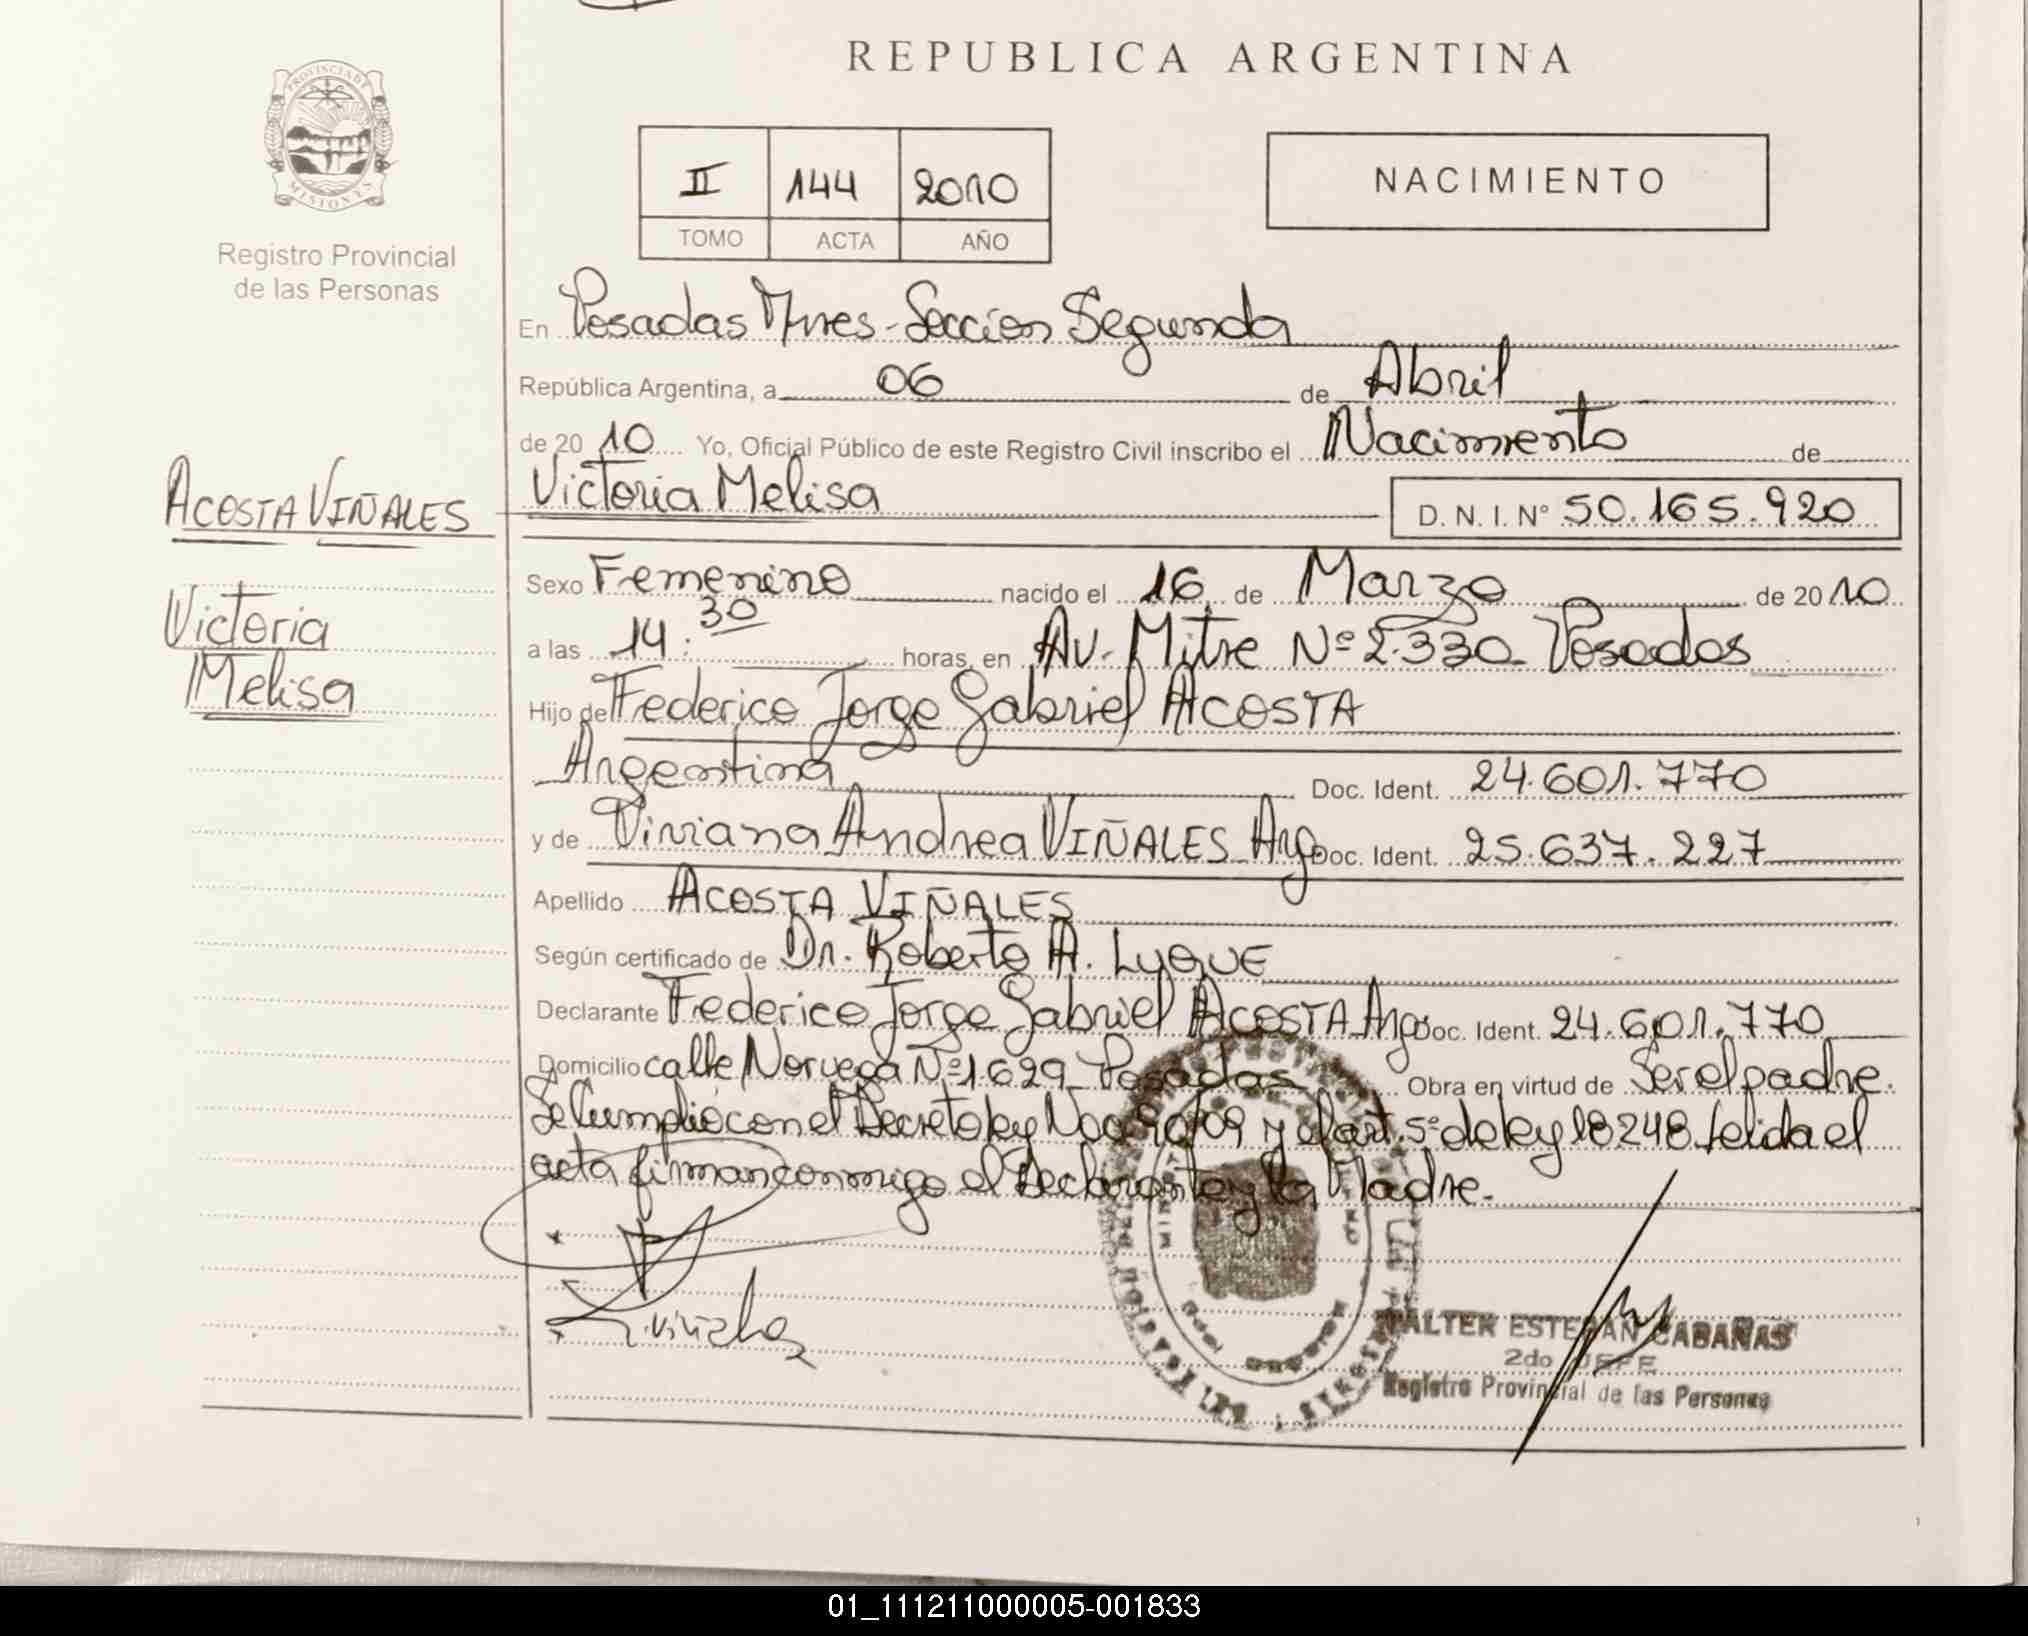 REPUBLICA ARGENTINA
PROVINCIA DE MISIONES
Registro Provincial
de las Personas
II 144 2010
TOMO ACTA AÑO
NACIMIENTO
En Posadas Mnes-Seccion Segunda
República Argentina, a 06 de Abril
de 2010 Yo, Oficial Público de este Registro Civil inscribo el Nacimiento de
ACOSTA VIÑALES
Victoria Melisa D. N. I. N° 50.165.920
Sexo Femenino nacido el 16 de Marzo de 2010
Victoria
Melisa
a las 14:30 horas, en Av. Mitre Nº 2.330 Posadas
Hijo de Federico Jorge Gabriel ACOSTA
Argentina Doc. Ident. 24.601.770
y de Viviana Andrea VIÑALES Arg Doc. Ident. 25.637.227
Apellido ACOSTA VIÑALES
Según certificado de Dr. Roberto A. LUQUE
Declarante Federico Jorge Gabriel ACOSTA Arg Doc. Ident. 24.601.770
Domicilio calle Noruega Nº 1629 Posadas Obra en virtud de Ser el padre.
Se Cumplió con el Decreto ley y el art. 5º de ley 18248. Leida el
acta firman conmigo el Declarante y la Madre.
WALTER ESTEBAN CABAÑAS
2do JEFE
Registro Provincial de las Personas
01_111211000005-001833